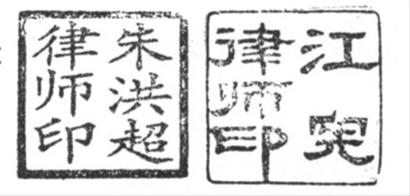 朱洪超
律师印
江宪
律师印